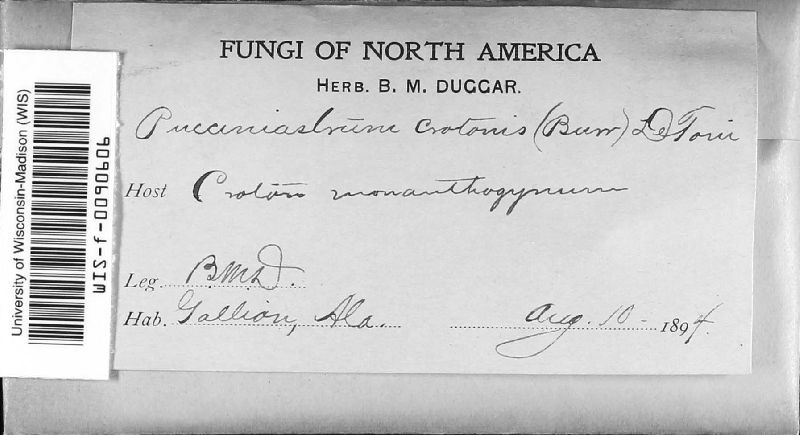 FUNGI OF NORTH AMERICA
HERB. B. M. DUGGAR.
Pucciniastrum crotonis (Burr) De Toni
Host Croton monanthogynum
Leg. B.M.D.
Hab. Gallion, Ala. Aug. 10 - 1894.
University of Wisconsin-Madison (WIS)
WIS-f-0090606